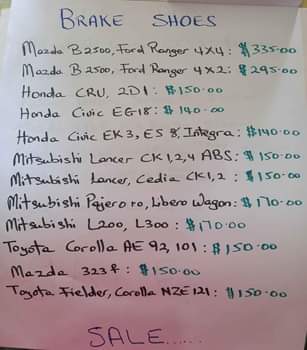 BRAKE SHOES
Mazda B2500, Ford Ranger 4x4: $335.00
Mazda B2500, Ford Ranger 4x2: $295.00
Honda CRV, 2D1: $150.00
Honda Civic EG18: $140.00
Honda Civic EK3, ES8, Integra: $140.00
Mitsubishi Lancer CK1,2,4 ABS: $150.00
Mitsubishi Lancer, Cedia CK1,2: $150.00
Mitsubishi Pajero io, Libero Wagon: $170.00
Mitsubishi L200, L300: $170.00
Toyota Corolla AE 92, 101: $150.00
Mazda 323f: $150.00
Toyota Fielder, Corolla NZE121: $150.00
SALE.....